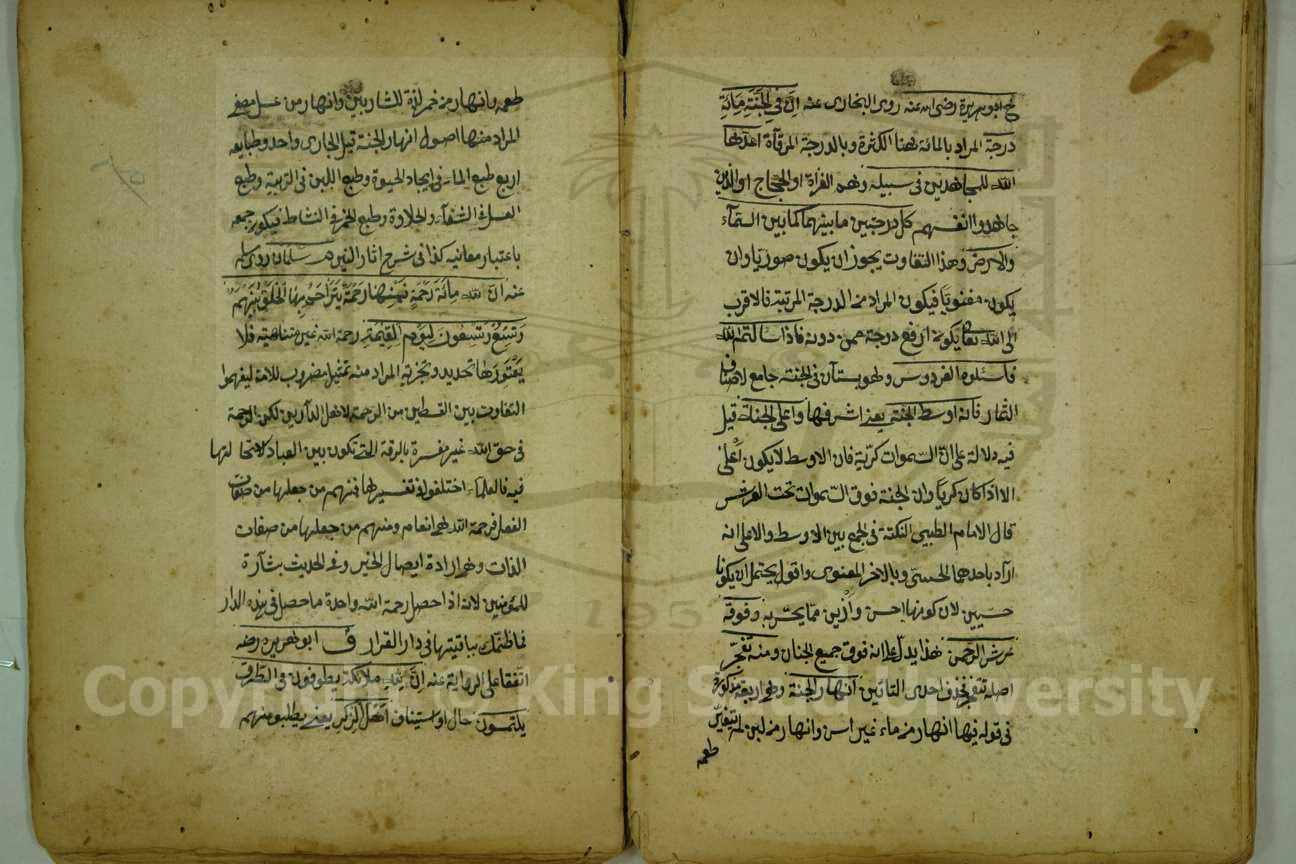 خ ابو هريرة رضى الله عنه روى البخارى عنه ان فى الجنة مائة
درجة المراد بالمائة ههنا الكثرة وبالدرجة المرقاة اعدها
الله للمجاهدين فى سبيله وهم الغزاة او الحجاج او الذين
جاهدوا انفسهم كل درجتين ما بينهما كما بين السمآء
والارض وهذا التفاوت يجوز ان يكون صوريا وان
يكون معنويا فيكون المراد من الدرجة المرتبة فالاقرب
الى الله تعالى يكون ارفع درجة ممن دونه فاذا سالتم الله
فاسئلوه الفردوس وهو بستان فى الجنة جامع لاصناف
الثمار فانه اوسط الجنة يعنى اشرفها واعلى الجنة قيل
فيه دلالة على ان السموات كرية فان الاوسط لا يكون اعلى
الا اذا كان كريا وان الجنة فوق السموات تحت العرش
قال الامام الطيبى النكتة فى الجمع بين الاوسط والاعلى انه
اراد باحدهما الحسى وبالاخر المعنوى واقول يحتمل ان يكونا
حسيين لان كونها احسن وازين مما يحس به وفوقه
عرش الرحمن هذا يدل على انه فوق جميع الجنان ومنه تفجر
اصله تتفجر فحذف احدى التائين انهار الجنة وهى اربعة مذكورة
فى قوله فيها انهار من ماء غير اسن وانهار من لبن لم يتغير
طعمه
طعمه وانهار من خمر لذة للشاربين وانهار من عسل مصفى
المراد منها اصول انهار الجنة قيل الجارى واحد وطبايعه
اربع طبع الماء فى ايجاد الحيوة وطبع اللبن فى التربية وطبع
العسل فى الشفآء والحلاوة وطبع الخمر فى النشاط فيكون جمعه
باعتبار معانيه كذا فى شرح اثار النيرين م سلمان روى مسلم
عنه ان لله مائة رحمة فمنها رحمة يتراحم بها الخلق بينهم
وتسع وتسعون ليوم القيمة رحمة الله غير متناهية فلا
يعتورها تحديد وتجزية المراد منه تمثيل مضروب للامة ليفهموا
التفاوت بين القسطين من الرحمة لاهل الدارين لكن الرحمة
فى حق الله غير مفسرة بالرقة التى تكون بين العباد لاستحالتها
فيه فالعلماء اختلفوا فى تفسيرها فمنهم من جعلها من صفات
الفعل فرحمة الله هى انعام ومنهم من جعلها من صفات
الذات وهى ارادة ايصال الخير وفى الحديث بشارة
للمؤمنين لانه اذا حصل رحمة الله واحدة ما حصل فى هذه الدار
فما ظنك بباقيتها فى دار القرار ق ابو هريرة رضه
اتفقا على الرواية عنه ان لله ملائكة يطوفون فى الطرق
يلتمسون حال او استيناف اهل الذكر يعنى يطلبو منهم
Copyright © King Saud University
195